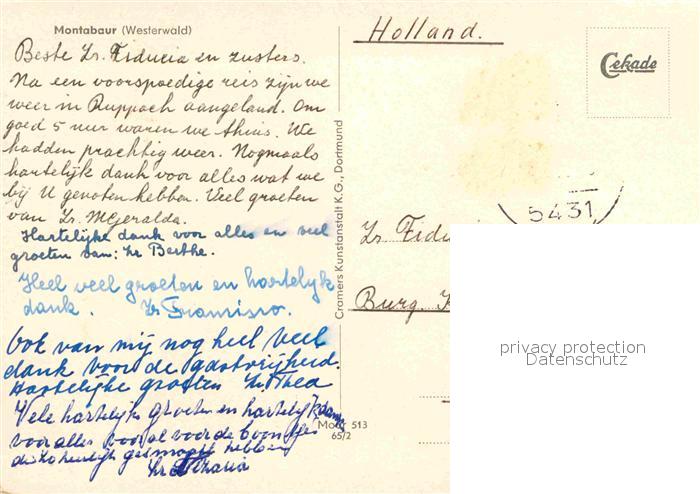 Montabaur (Westerwald)
Beste Zr. Fiducia en zusters.
Na een voorspoedige reis zijn we
weer in Ruppach aangeland. Om
goed 5 uur waren we thuis. We
hadden prachtig weer. Nogmaals
hartelijk dank voor alles wat we
bij U genoten hebben. Veel groeten
van Zr. M Geralda.
Hartelijke dank voor alles en veel
groeten van: Zr Berthe.
Heel veel groeten en hartelijk
dank. Zr
Ook van mij nog heel veel
dank voor de gastvrijheid.
Hartelijke groeten Zr. Thea
Vele hartelijke groeten en hartelijk dank
voor alles vooral voor de
die zo heerlijk gesmaakt hebben
Zr
Cramers Kunstanstalt K.G., Dortmund
Moor 513
65/2
Holland.
Cekade
5431
Zr Fidu
Burg.
privacy protection
Datenschutz